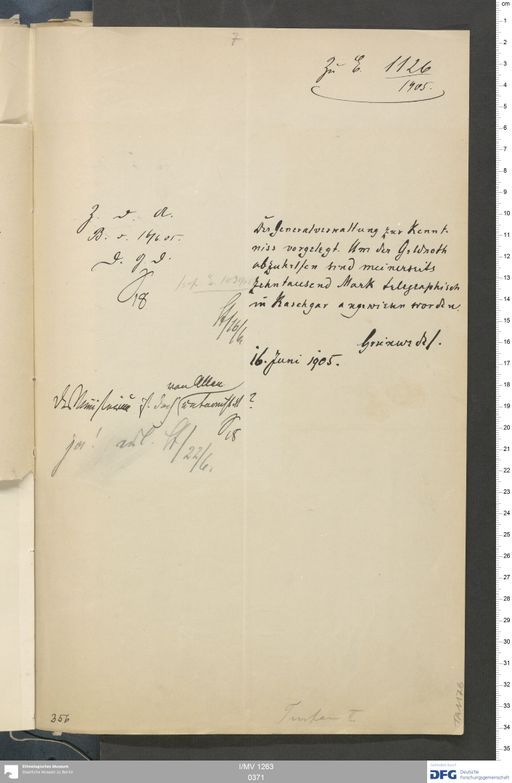 7
Zu E. 1126
1905.
Z. d. A.
B. d. 16/6 05.
D. G. V.
18
St/16/6
Der Generalverwaltung zur Kennt-
niss vorgelegt. Um der Geldnoth
abzuhelfen sind meinerseits
zehntausend Mark telegraphisch
in Kaschgar angewiesen worden
Grünwedel.
16. Juni 1905.
von Allem
das Ministerium ist doch unterrichtet?
18
ja! St/22/6.
356
Turfan I
TA 1176
Ethnologisches Museum
Staatliche Museen zu Berlin
I/MV 1263
0371
gefördert durch
DFG Deutsche
Forschungsgemeinschaft
cm
1
2
3
4
5
6
7
8
9
10
11
12
13
14
15
16
17
18
19
20
21
22
23
24
25
26
27
28
29
30
31
32
33
34
35